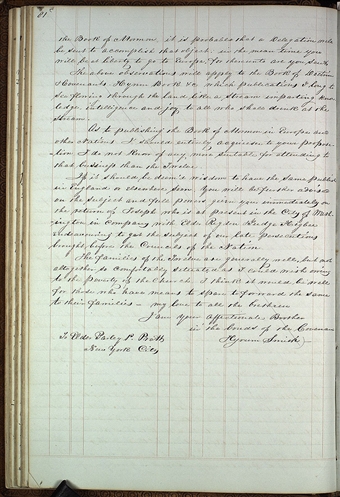 81
the Book of Mormon, it is probable that a Delegation will
be sent to accomplish that object. in the mean time you
will be at liberty to go to Europe,
The above observations will apply to the Book of Doctrine
& Covenants, Hymn Book &c which publications I long to
see flowing through the land like a stream imparting know
ledge, intelligence and joy to all who shall drink at the
Stream.
As to publishing the Book of Mormon in Europe and
other Nations I should entirely acquiesce in your propos-
ition I do not know of any, more suitable for attending to
that business than the Twelve.
If it should be deem'd wisdom to have the same publish
in England or elsewhere soon You will be further advised
on the subject and full powers given you immediately on
the return of Joseph who is at present in the City of Wash
ington in Company with Elder Rigdon & Judge Higbee
Endeavouring to get the subject of our late persecutions
brought before the Councils of the Nation
The Families of the Twelve are generally well, but not
altogether so comfortably situated as I could wish owing
to the poverty of the Church. I think it would be well
for those who have means to spare to forward the same
to their families — my love to all the brethren
I am Your affectionate Brother
in the bonds of the Covenant
Hyrum Smith
To Elder Parley P. Pratt
New York City